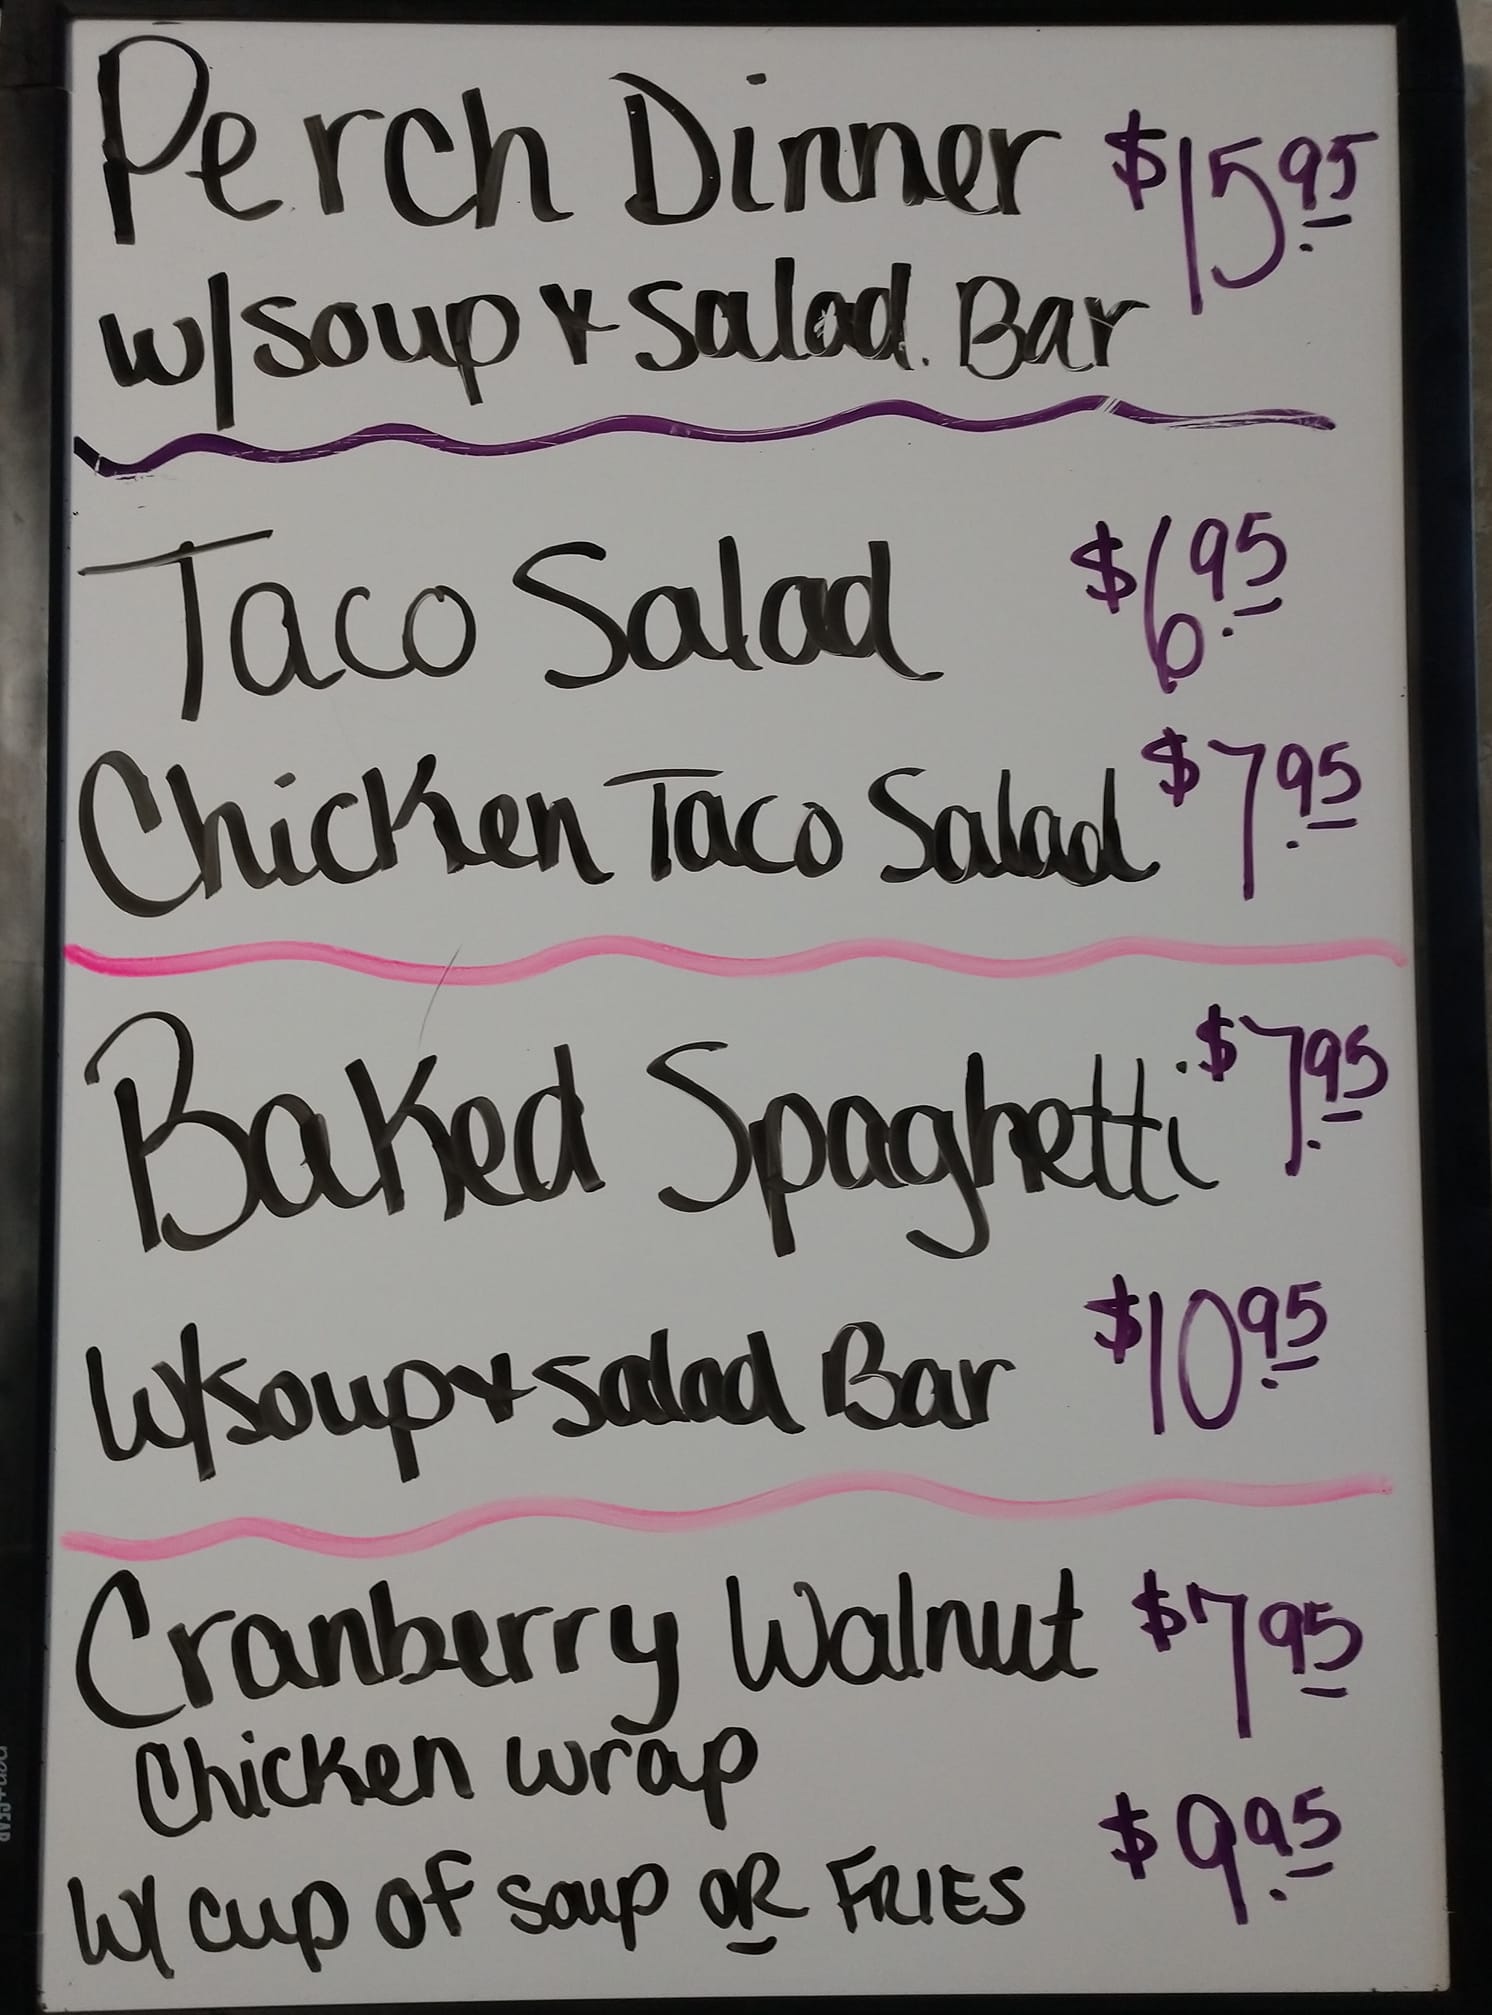 Perch Dinner $15.95
w/soup & salad Bar
Taco Salad $6.95
Chicken Taco Salad $7.95
Baked Spaghetti $7.95
w/soup & salad Bar $10.95
Cranberry Walnut $7.95
Chicken wrap
w/ cup of soup OR FRIES $9.95